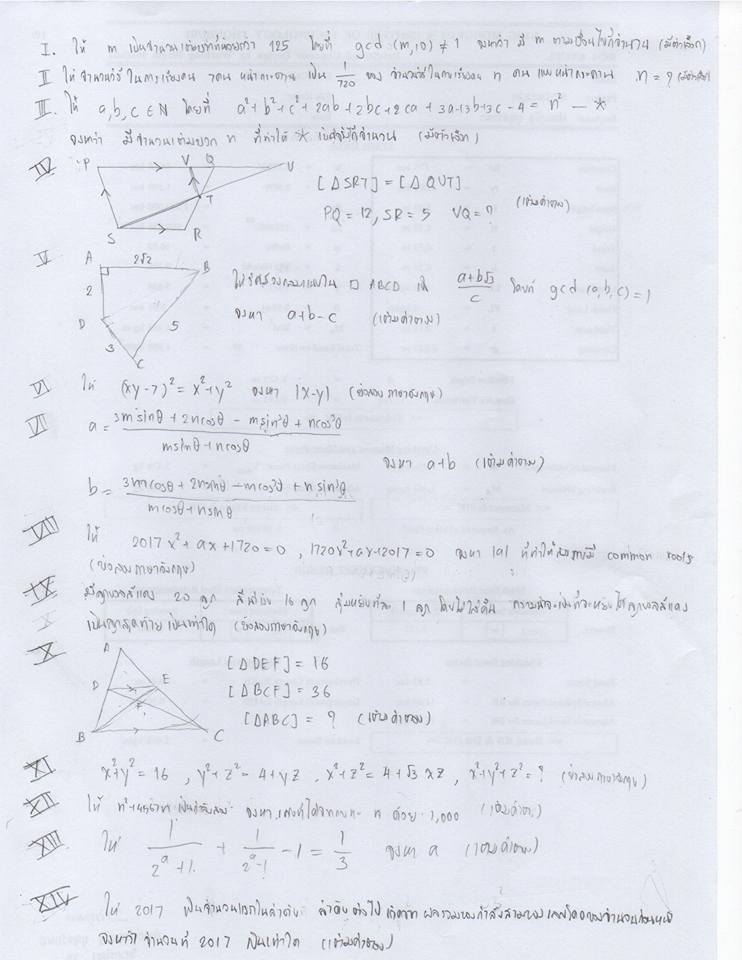 I. ให้ m เป็นจำนวนเต็มบวกที่น้อยกว่า 125 โดยที่ gcd (m,10) ≠ 1 จงหาว่า มี m ตามเงื่อนไขกี่จำนวน (มีตัวเลือก)
II ให้ จำนวนวิธี ในการเรียงคน 7คน หน้ากระดาน เป็น 1/720 ของ จำนวนวิธีในการเรียงคน n คน แบบหน้ากระดาน n = ? (มีตัวเลือก)
III. ให้ a,b,c ∈ N โดยที่ a²+b²+c²+2ab+2bc+2ca+3a+3b+3c-4 = n² — *
จงหาว่า มีจำนวนเต็มบวก n ที่ทำให้ * เป็นจริงกี่จำนวน (มีตัวเลือก)
IV P V Q U
T
S R
[△SRT] = [△QUT]
PQ = 12, SR = 5 VQ = ? (เติมคำตอบ)
V A 2√2 B
2 D 3 C 5
ให้ □ ABCD (a+b√3)/c โดยที่ gcd (a,b,c) = 1
จงหา a+b-c (เติมคำตอบ)
VI ให้ (xy-7)² = x²+y² จงหา |x-y| (ข้อสอบภาษาอังกฤษ)
VII a = (3msinθ + 2ncosθ - msin³θ + ncos³θ)/(msinθ+ncosθ)
จงหา a+b (เติมคำตอบ)
b = (3mcosθ + 2nsinθ - mcos³θ + nsin³θ)/(mcosθ+nsinθ)
VIII ให้ 2017x²+ax+1720=0 , 1720x²+ax+2017=0 จงหา |a| ที่ทำให้สมการมี common roots
(ข้อสอบภาษาอังกฤษ)
IX มีลูกบอลสีแดง 20 ลูก สีน้ำเงิน 16 ลูก สุ่มหยิบทีละ 1 ลูก โดยไม่ใส่คืน ความน่าจะเป็นที่จะหยิบได้ลูกบอลสีแดง
เป็นลูกสุดท้าย เป็นเท่าใด (ข้อสอบภาษาอังกฤษ)
X A
D E
F
B C
[△DEF] = 16
[△BCF] = 36
[△ABC] = ? (เติมคำตอบ)
XI x²+y²=16 , y²+z²=4+yz , x²+z²=4+√3 xz , x²+y²+z²=? (ข้อสอบภาษาอังกฤษ)
XII ให้ เป็นกำลังสอง จงหา n ด้วย 1,000 (เติมคำตอบ)
XIII ให้ 1/(2ᵃ+1) + 1/(2ᵃ-1) - 1 = 1/3 จงหา a (เติมคำตอบ)
XIV ให้ 2017 เป็นจำนวนแรกในลำดับ ลำดับต่อไป เกิดจาก ผลรวมของกำลังสามของเลขโดดของจำนวนก่อนหน้า
จงหาว่า จำนวนที่ 2017 เป็นเท่าใด (เติมคำตอบ)